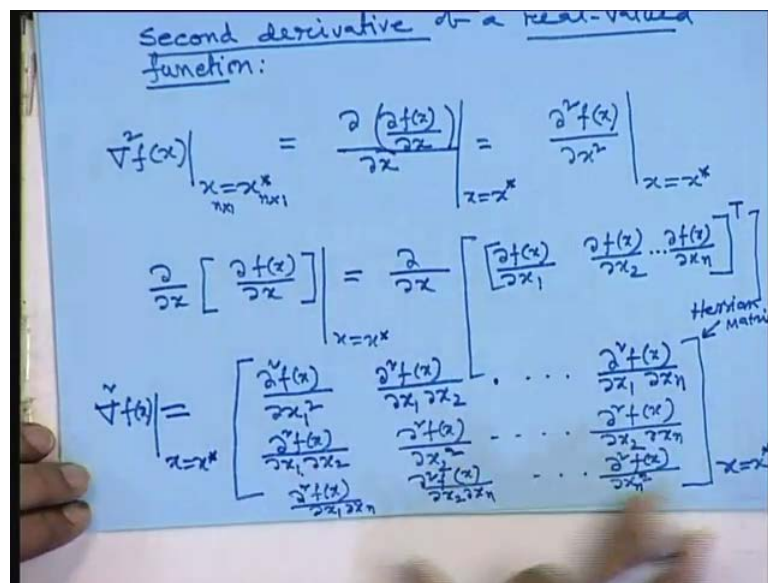 second derivative of a real-valued
function:
∇²f(x)|_{x=x*} = ∂(∂f(x)/∂x)/∂x|_{x=x*} = ∂²f(x)/∂x²|_{x=x*}
n×1 n×1
∂/∂x [∂f(x)/∂x]|_{x=x*} = ∂/∂x [[∂f(x)/∂x₁ ∂f(x)/∂x₂ ... ∂f(x)/∂xₙ]^T]
Hessian
Matri
∇²f(x)|_{x=x*} = [∂²f(x)/∂x₁² ∂²f(x)/∂x₁∂x₂ . . . . ∂²f(x)/∂x₁∂xₙ
∂²f(x)/∂x₁∂x₂ ∂²f(x)/∂x₂² - - - - ∂²f(x)/∂x₂∂xₙ
∂²f(x)/∂x₁∂xₙ ∂²f(x)/∂x₂∂xₙ - - - ∂²f(x)/∂xₙ²] x=x*